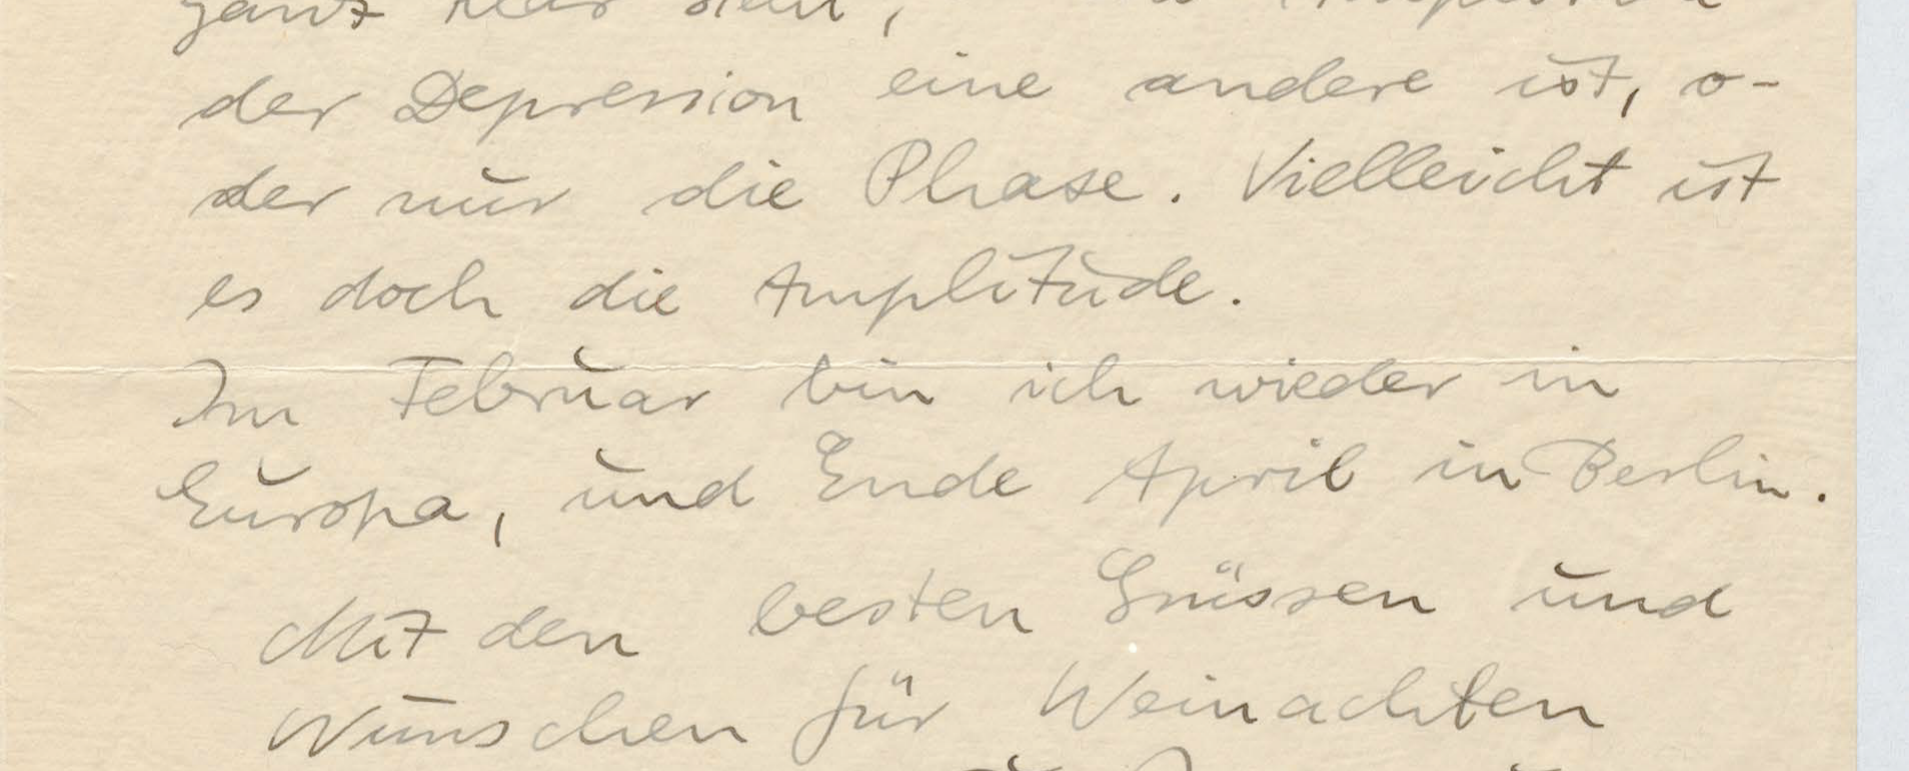 ganz klar
der Depression eine andere ist, o-
der nur die Phase. Vielleicht ist
es doch die Amplitude.
Im Februar bin ich wieder in
Europa, und Ende April in Berlin.
Mit den besten Grüssen und
Wünschen für Weinachten